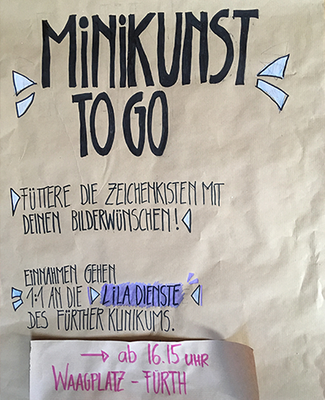 MiNiKUNST
TO GO
FÜTTERE DIE ZEICHENKISTEN MIT
DEINEN BILDERWÜNSCHEN!
EINNAHMEN GEHEN
1:1 AN DIE LiLA DIENSTE
DES FÜRTHER KLINIKUMS.
→ ab 16.15 UHR
WAAGPLATZ - FÜRTH